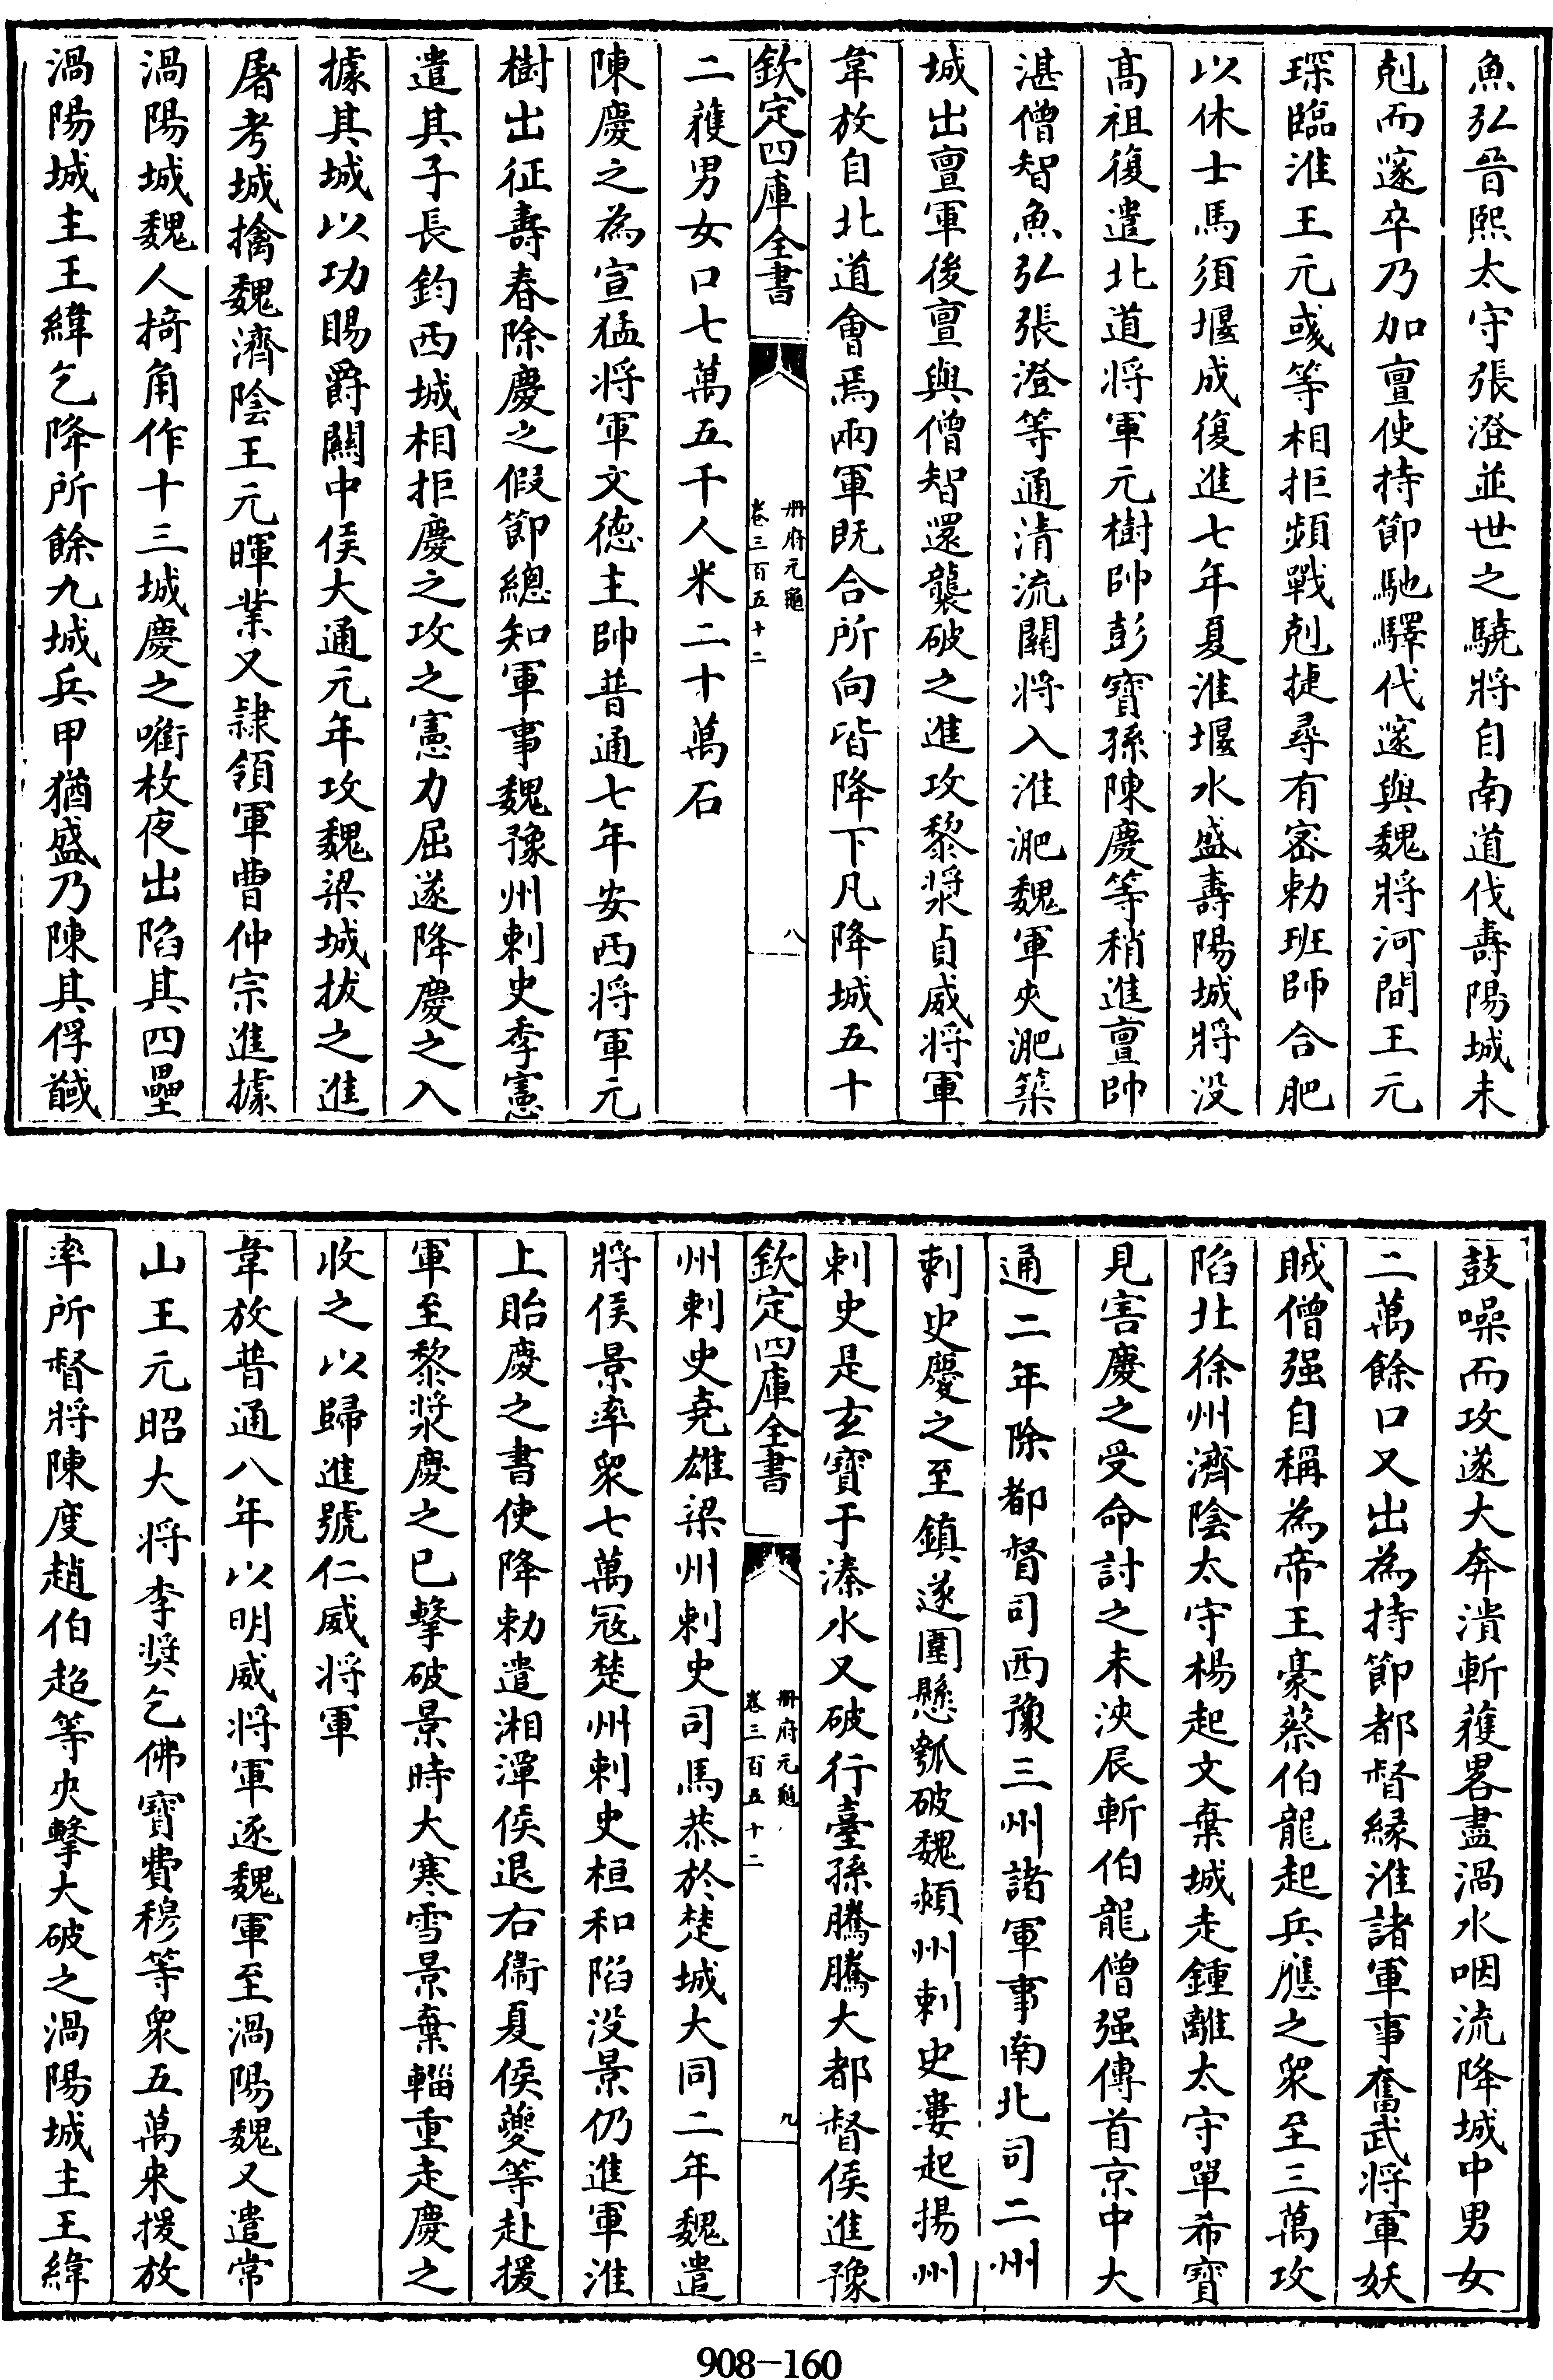 魚弘晉熙太守張澄並世之驍將自南道伐壽陽城未
剋而邃卒乃加亶使持節馳驛代邃與魏將河間王元
琛臨淮王元彧等相拒頻戰剋捷尋有密勅班師合肥
以休士馬須堰成復進七年夏淮堰水盛壽陽城將没
髙祖復遣北道將軍元樹帥彭寳孫陳慶等稍進亶帥
湛僧智魚弘張澄等通清流關將入淮淝魏軍夾淝築
城出亶軍後亶與僧智還襲破之進攻黎漿貞威將軍
韋放自北道㑹焉兩軍既合所向皆降下凡降城五十
欽定四庫全書
册府元龜
卷三百五十二
八
二獲男女口七萬五千人米二十萬石
陳慶之為宣猛將軍文德主帥普通七年安西將軍元
樹出征壽春除慶之假節總知軍事魏豫州刺史李憲
遣其子長鈞西城相拒慶之攻之憲力屈遂降慶之入
據其城以功賜爵關中侯大通元年攻魏梁城拔之進
屠考城擒魏濟隂王元暉業又隷領軍曹仲宗進據
渦陽城魏人掎角作十三城慶之㗸枚夜出陷其四壘
渦陽城主王緯乞降所餘九城兵甲猶盛乃陳其俘馘
鼓噪而攻遂大奔潰斬獲畧盡渦水咽流降城中男女
二萬餘口又出為持節都督縁淮諸軍事奮武將軍妖
賊僧强自稱為帝王豪蔡伯龍起兵應之衆至三萬攻
陷北徐州濟隂太守楊起文棄城走鍾離太守單希寳
見害慶之受命討之未浹辰斬伯龍僧强傳首京中大
通二年除都督司西豫三州諸軍事南北司二州
刺史慶之至鎮遂圍懸瓠破魏潁州刺史婁起揚州
刺史是玄寳于溱水又破行臺孫騰騰大都督侯進豫
欽定四庫全書
册府元龜
卷三百五十二
九
州刺史堯雄梁州刺史司馬恭於楚城大同二年魏遣
將侯景率衆七萬冦楚州刺史桓和陷没景仍進軍淮
上貽慶之書使降勅遣湘潭侯退右衞夏侯夔等赴援
軍至黎漿慶之已擊破景時大寒雪景棄輜重走慶之
收之以歸進號仁威將軍
韋放普通八年以明威將軍逐魏軍至渦陽魏又遣常
山王元昭大將李奬乞佛寳費穆等衆五萬來援放
率所督將陳度趙伯超等夾擊大破之渦陽城主王緯
908—160